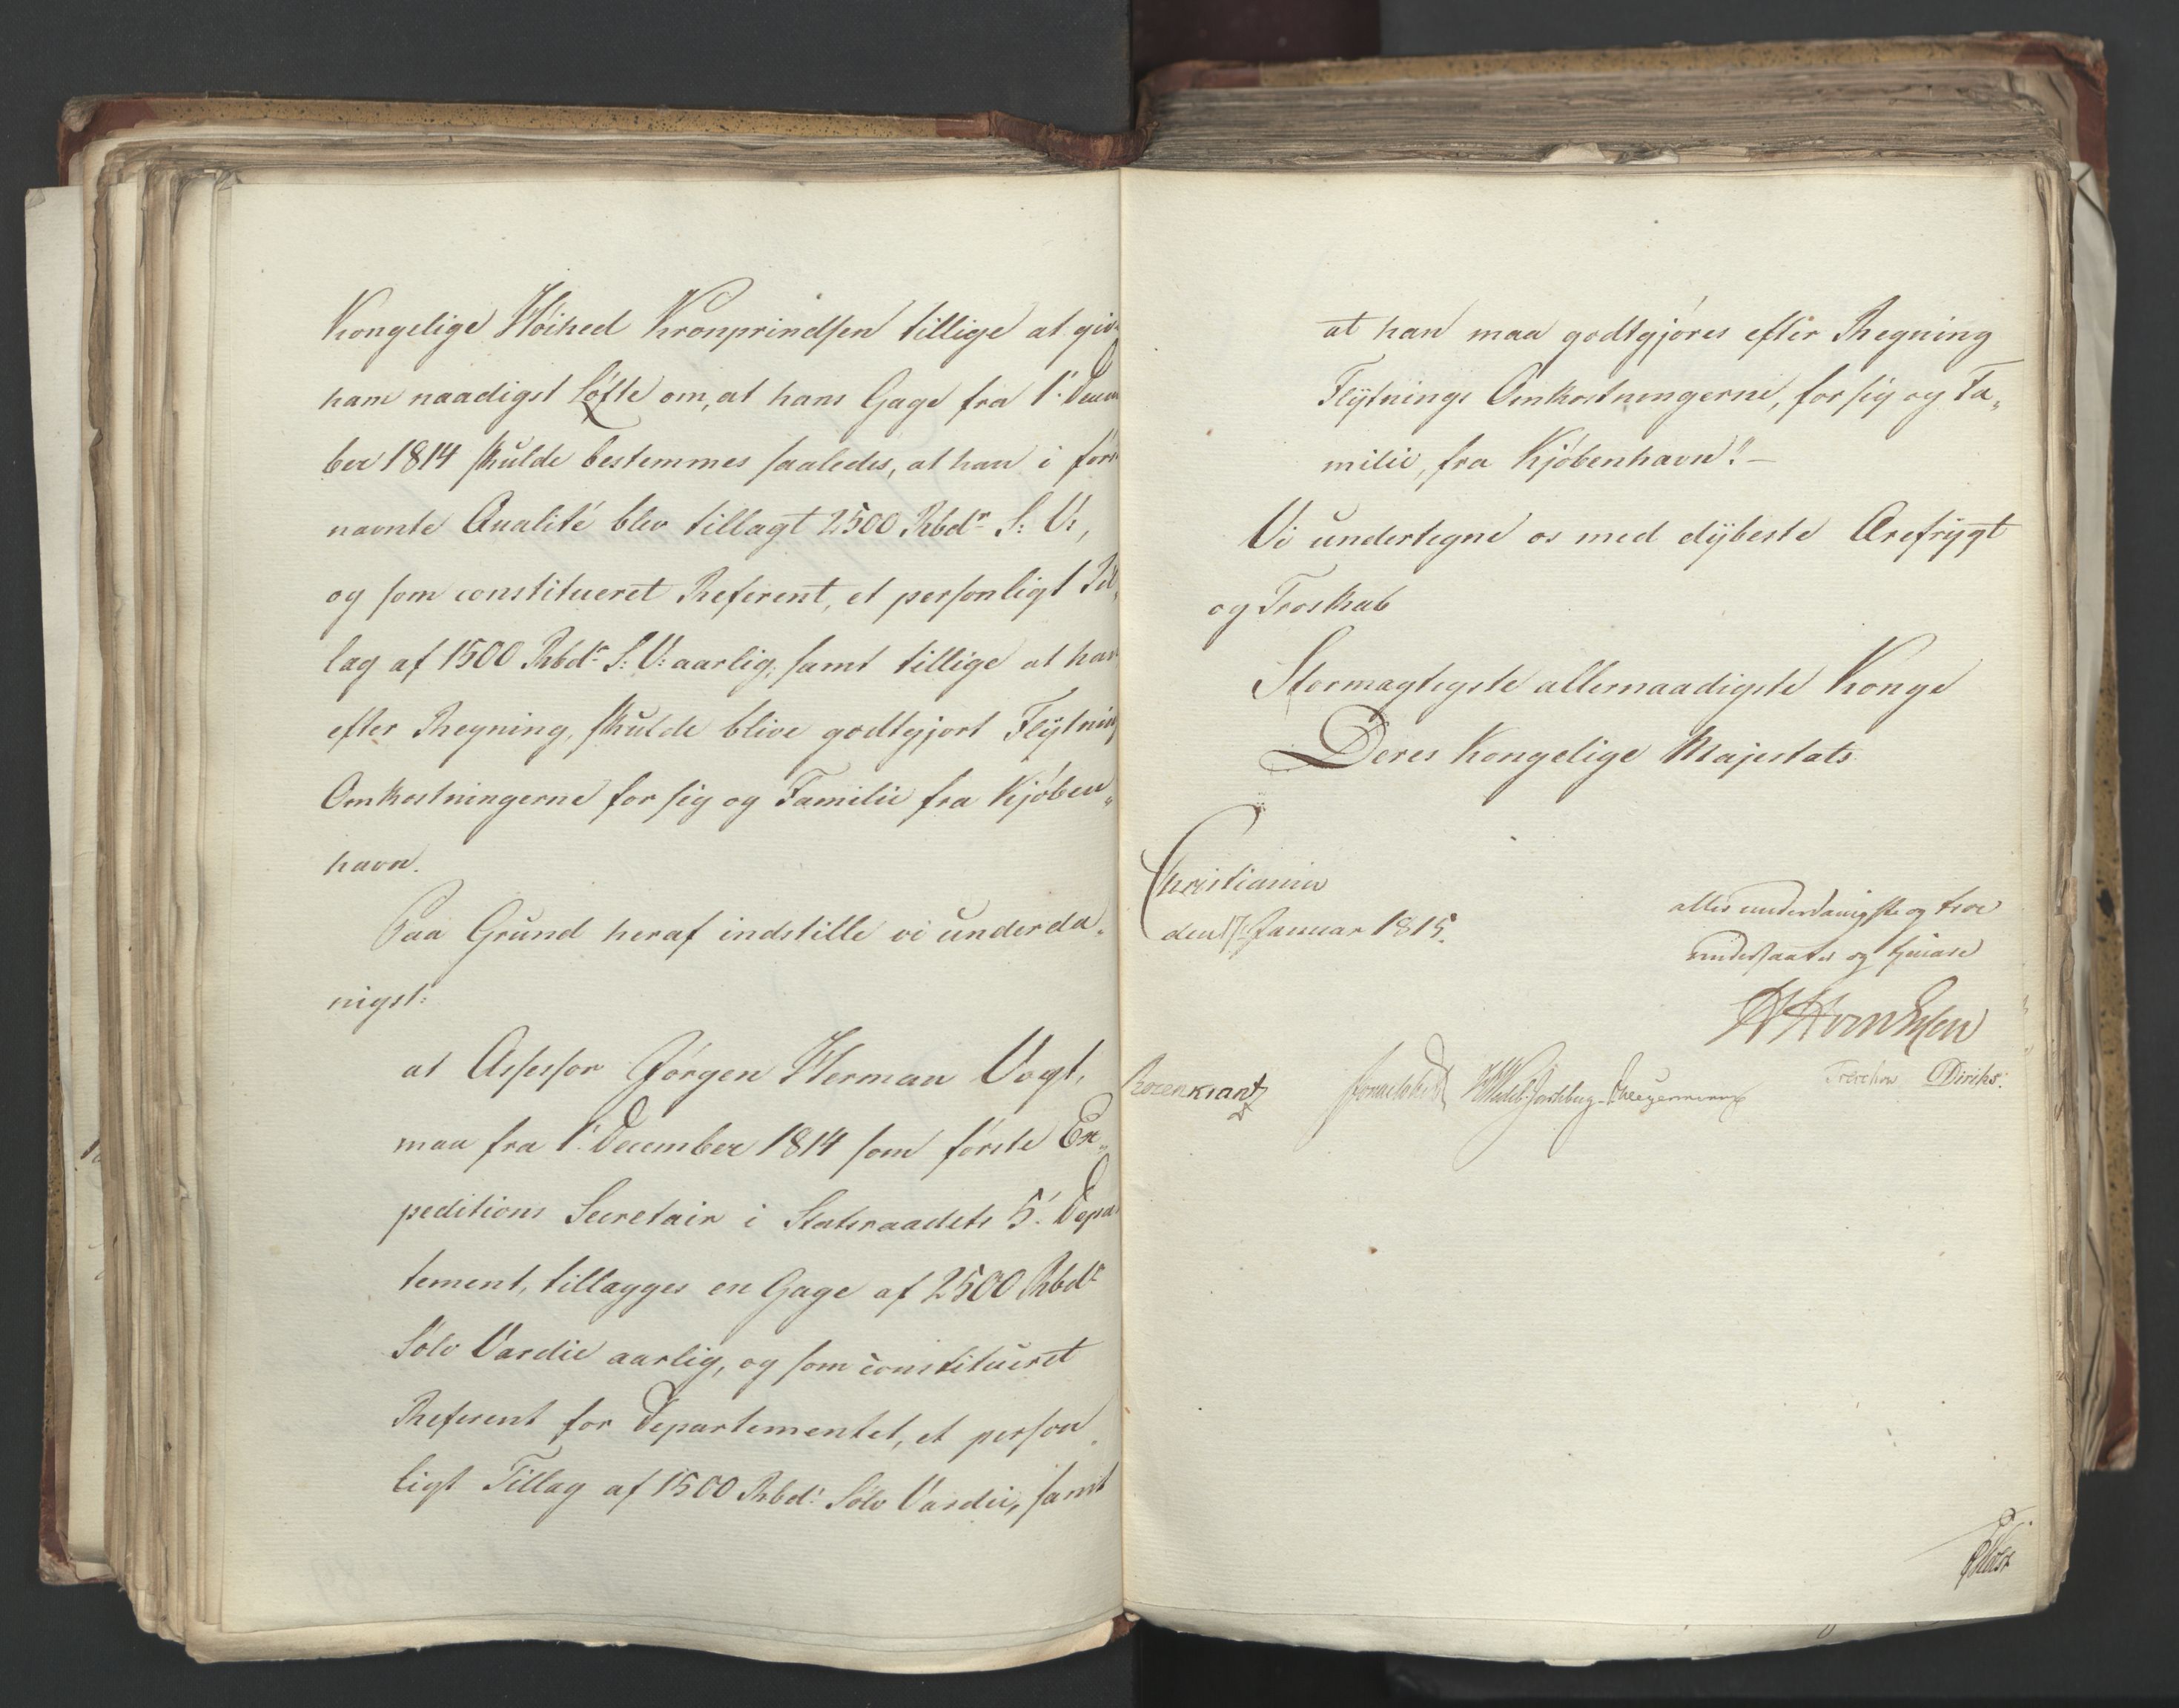 Kongelige Høihed Kronprindsen tillige at giv
ham naadigst Løfte om, at hans Gage fra 1' Decem
ber 1814 skulde bestemmes saaledes, at han i før
nævnte Qualité blev tillagt 2500 Rbdr S: V:,
og som constitueret Referent, et personligt Til,
læg af 1500 Rbdr S: V: aarlig, samt tillige at han
efter Regning, skulde blive godtgjort Flÿtning
Omkostningerne for sig og Familie fra Kjøben„
havn.
Paa Grund heraf indstille vi underda„
nigst:
at Assessor Jørgen Herman Vogt,
maa fra 1' December 1814 som første Ex„
peditions Secretair i Statsraadets 5' Depar
tement, tillægges en Gage af 2500 Rbdr
Sølv Værdie aarlig, og som constitueret
Referent for Departementet, et person„
ligt Tillæg af 1500 Rbdr Sølv Værdie, samt
at han maa godtgjøres efter Regning
Flÿtnings Omkostningerne, for sig og Fa„
milie, fra Kjøbenhavn." —
Vi undertegne os med dÿbeste Ærefrÿgt
og Troskab
Stormægtigste allernaadigste Konge
Deres Kongelige Majestæts
Christiania
den 17 Januar 1815.
allerunderdanigste og troe
undersaatter og tjenere
Rosenkrantz
Sommerhielm
HWedel-Jarlsberg
Treschow
Diriks.